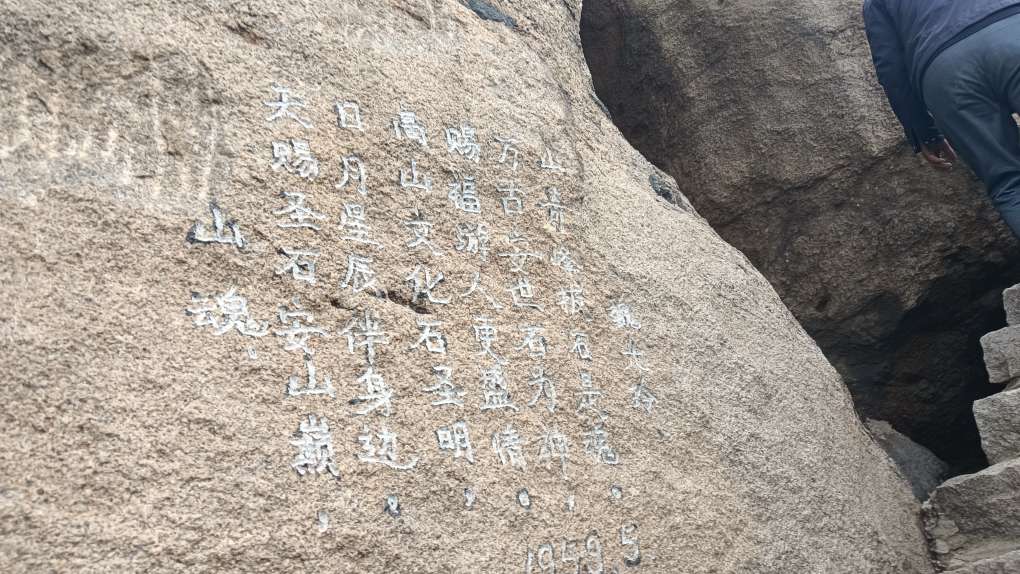 山魂:
天赐圣石安山巅,
日月星辰伴身边,
高山文化石圣明,
赐福游人更盛情.
万古安石为神,
山峰石是魂.
魏
1959.5